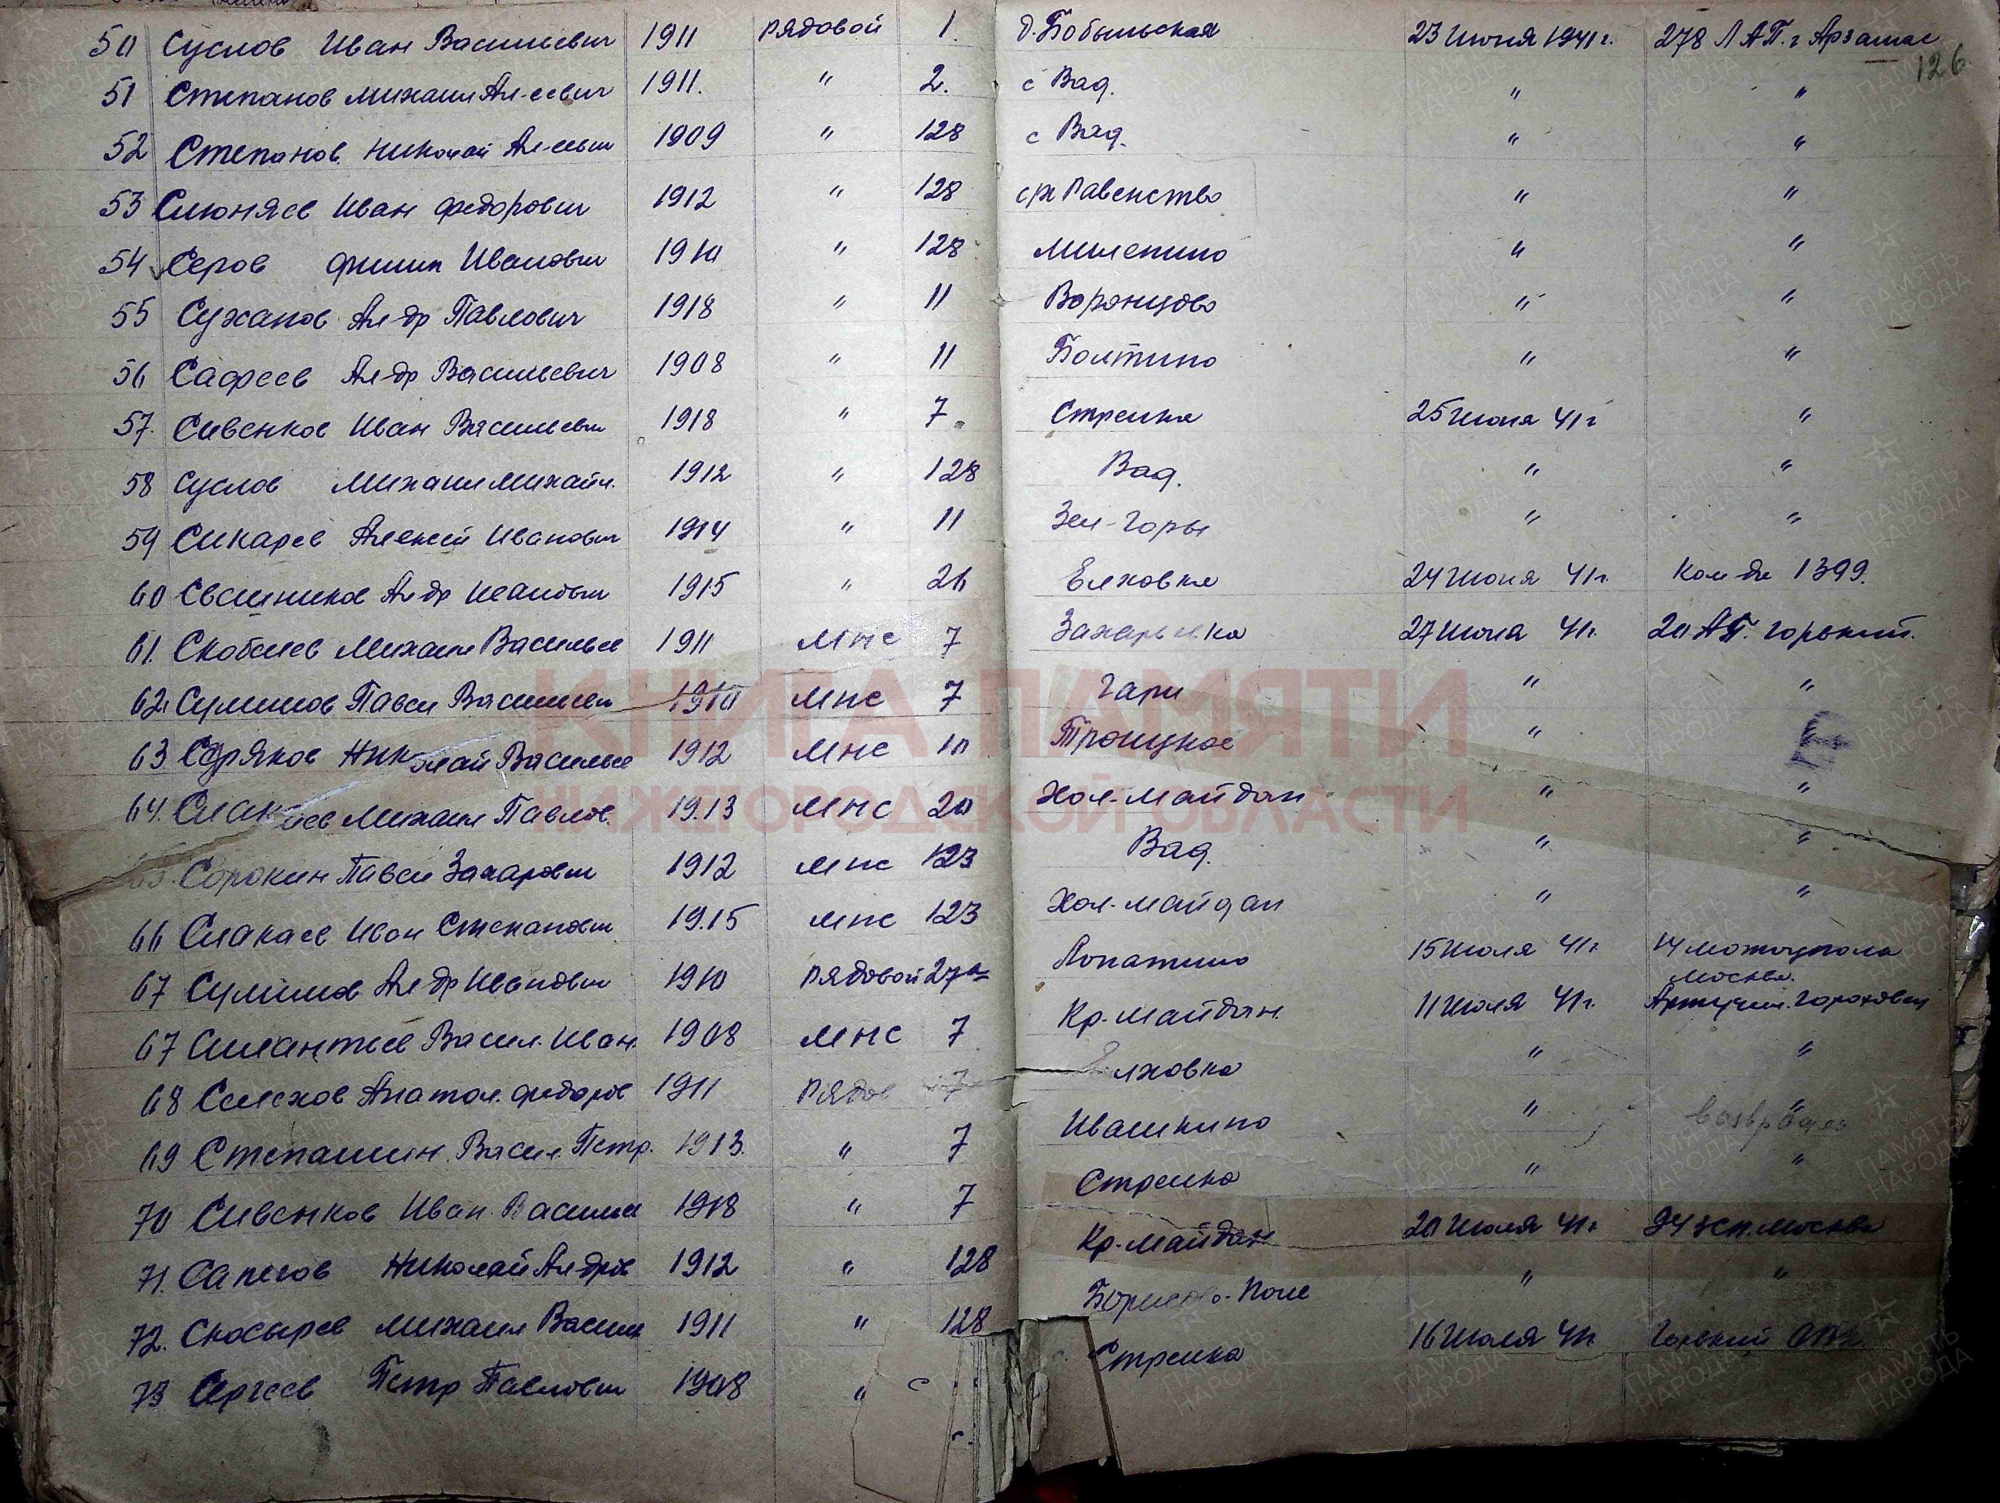 50 Суслов Иван Васильевич 1911 рядовой 1. д. Бобыльская 23 июня 1941 г. 278 ЛАП. г Арзамас
126
51 Степанов Михаил Ал-еевич 1911. " 2. с Вад. " "
52 Степанов Николай Ал-еевич 1909 " 128 с Вад. " "
53 Слюняев Иван Федорович 1912 " 128 с/х Равенство " "
54 Серов Филип Иванович 1910 " 128 Милепино " "
55 Суханов Ал-др Павлович 1918 " 11 Воронцово " "
56 Сафеев Ал-др Васильевич 1908 " 11 Болтино " "
57. Сивенков Иван Васильевич 1918 " 7. Стрелка 25 июня 41 г "
58 Суслов Михаил Михайл. 1912 " 128 Вад. " "
59 Сикарев Алексей Иванович 1914 " 11 Зел-Горы " "
60 Ал-др Иванович 1915 " 26 Елховка 24 июня 41 г. Ком-да 1399.
61. Скобелев Михаил Василье 1911 МНС 7 Захаровка 27 июня 41 г. 20 АП. Горький.
62. Сулимов Павел Васильев 1910 МНС 7 Гари " "
63 Николай Василье 1912 МНС 10 Троицкое "
64. Михаил Павлов. 1913 МНС 20 Хол-Майдан " "
Сорокин Павел Захарович 1912 МНС 123 Вад. " "
66 Слакаев Иван Степанович 1915 МНС 123 Хол-Майдан " "
67 Сулимов Ал-др Иванович 1910 рядовой 27а Лопатино 15 июля 41 г 14 мотоцполк Москва.
67 Силантьев Васил. Иван. 1908 МНС 7 Кр-Майдан. 11 июля 41 г. Артучил. Гороховец
68 Селехов Анатол. Федоров 1911 рядов 7 Елховка " "
69 Степашин Васил Петр. 1913. " 7 Ивашкино " " возвращен
70 Сивенков Иван Василье 1918 " 7 Стрелка " "
71. Сапегов Николай Ал-дров 1912 " 128 Кр-Майдан 20 июля 41 г 94 Москва
72. Скосырев Михаил Васил 1911 " 128 Борисово-Поле " "
73 Сергеев Петр Павлович 1908 " Стрелка 16 июля 41 г Горький
КНИГА ПАМЯТИ
НИЖЕГОРОДСКОЙ ОБЛАСТИ
ПАМЯТЬ НАРОДА